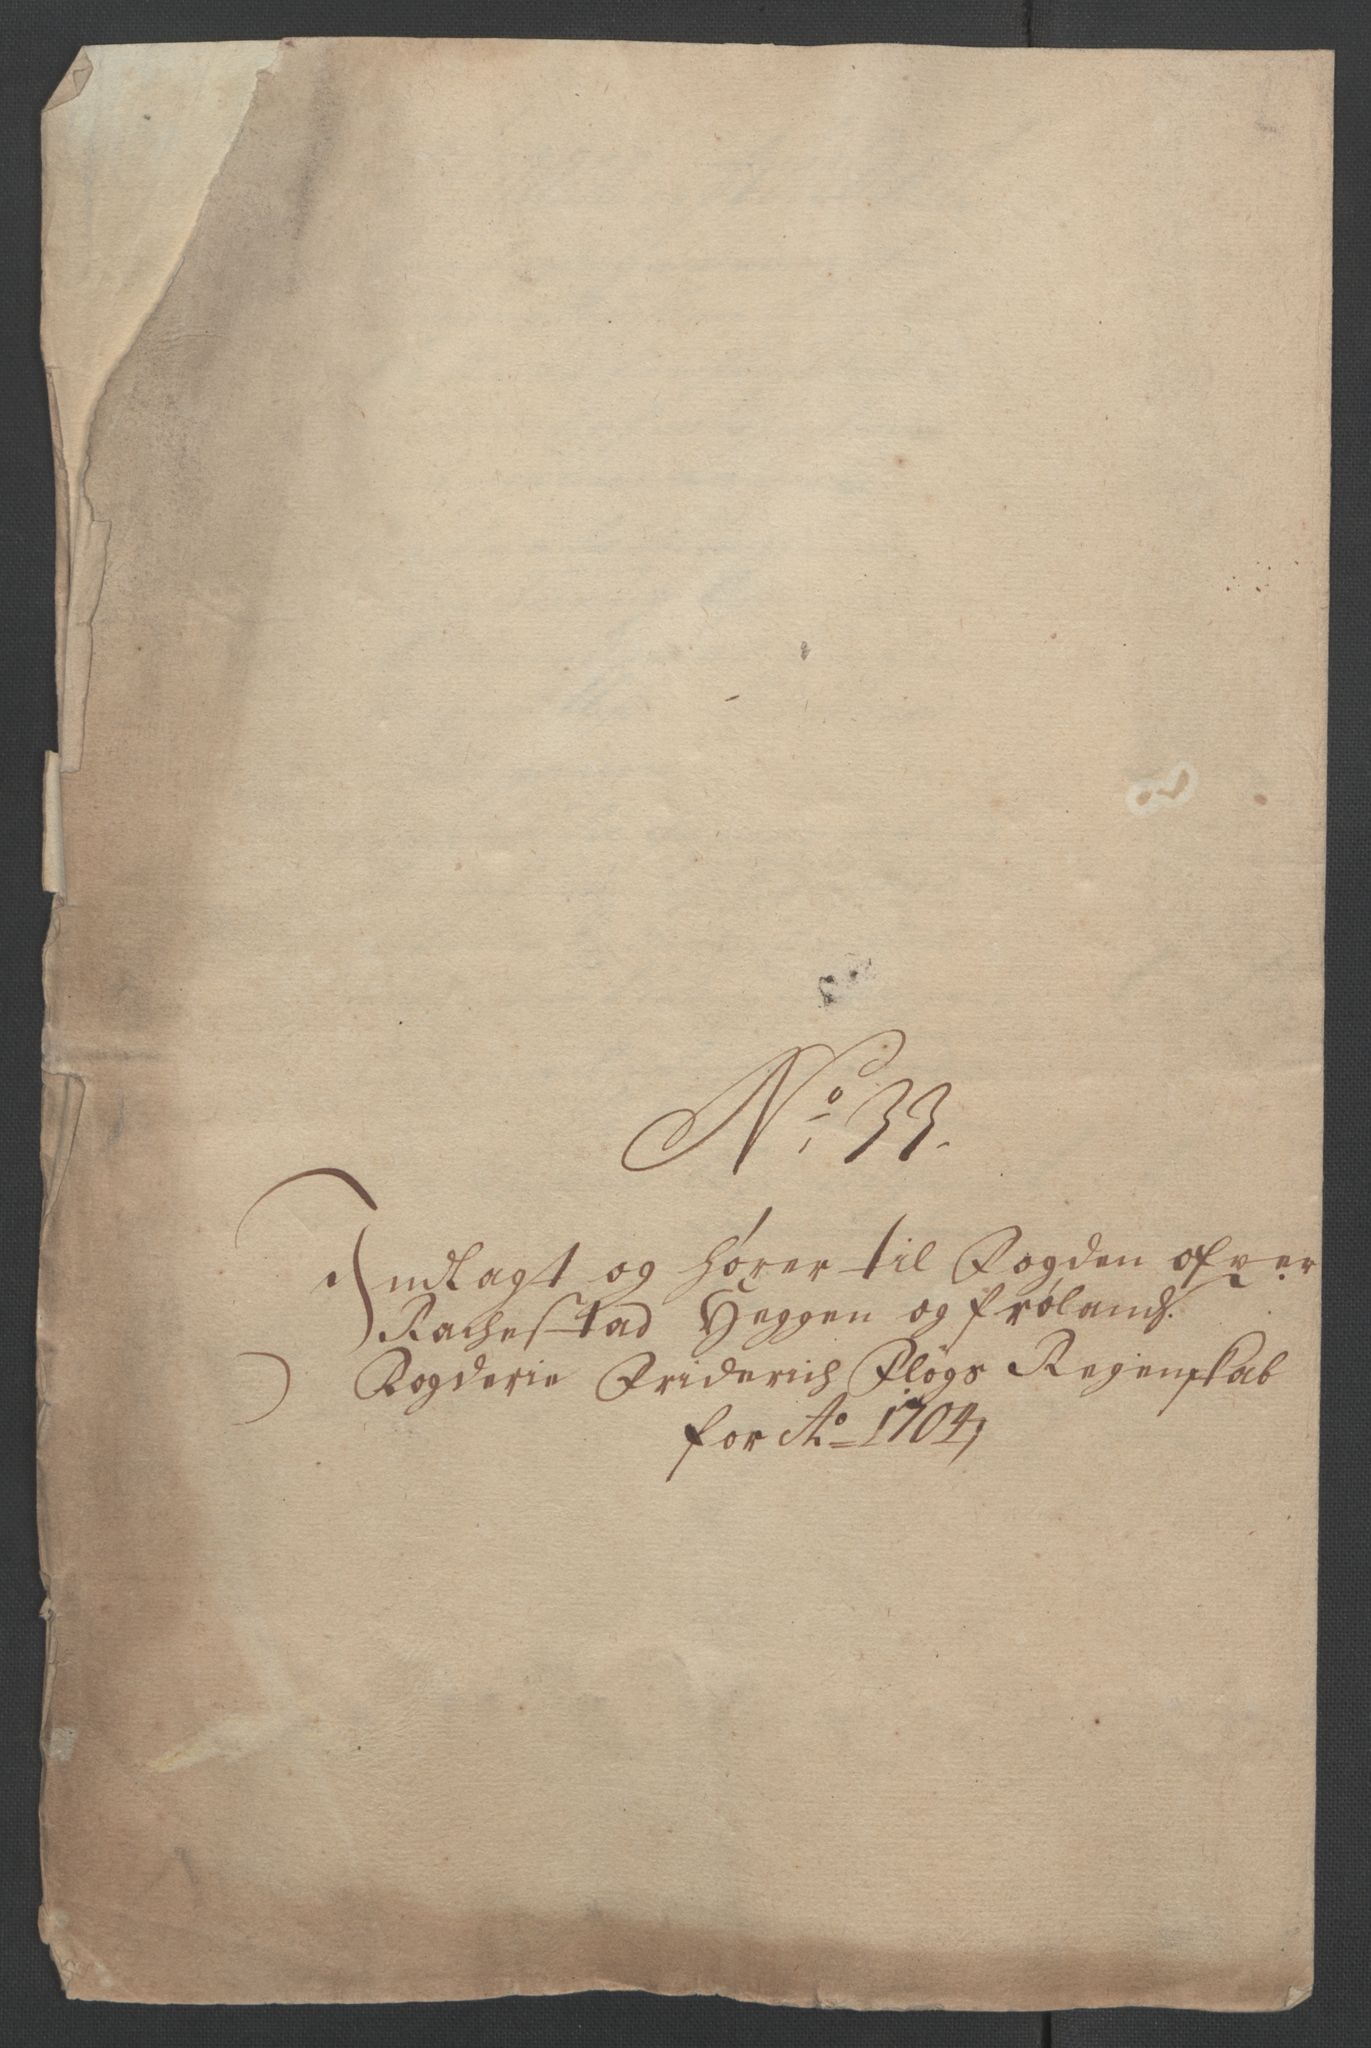 No: 33.
Indlagt og hører til Fogden ofver
Rachestad Heggen og Frølands
Fogderie Friderich Pløgs Regenskab
for Ao 1704